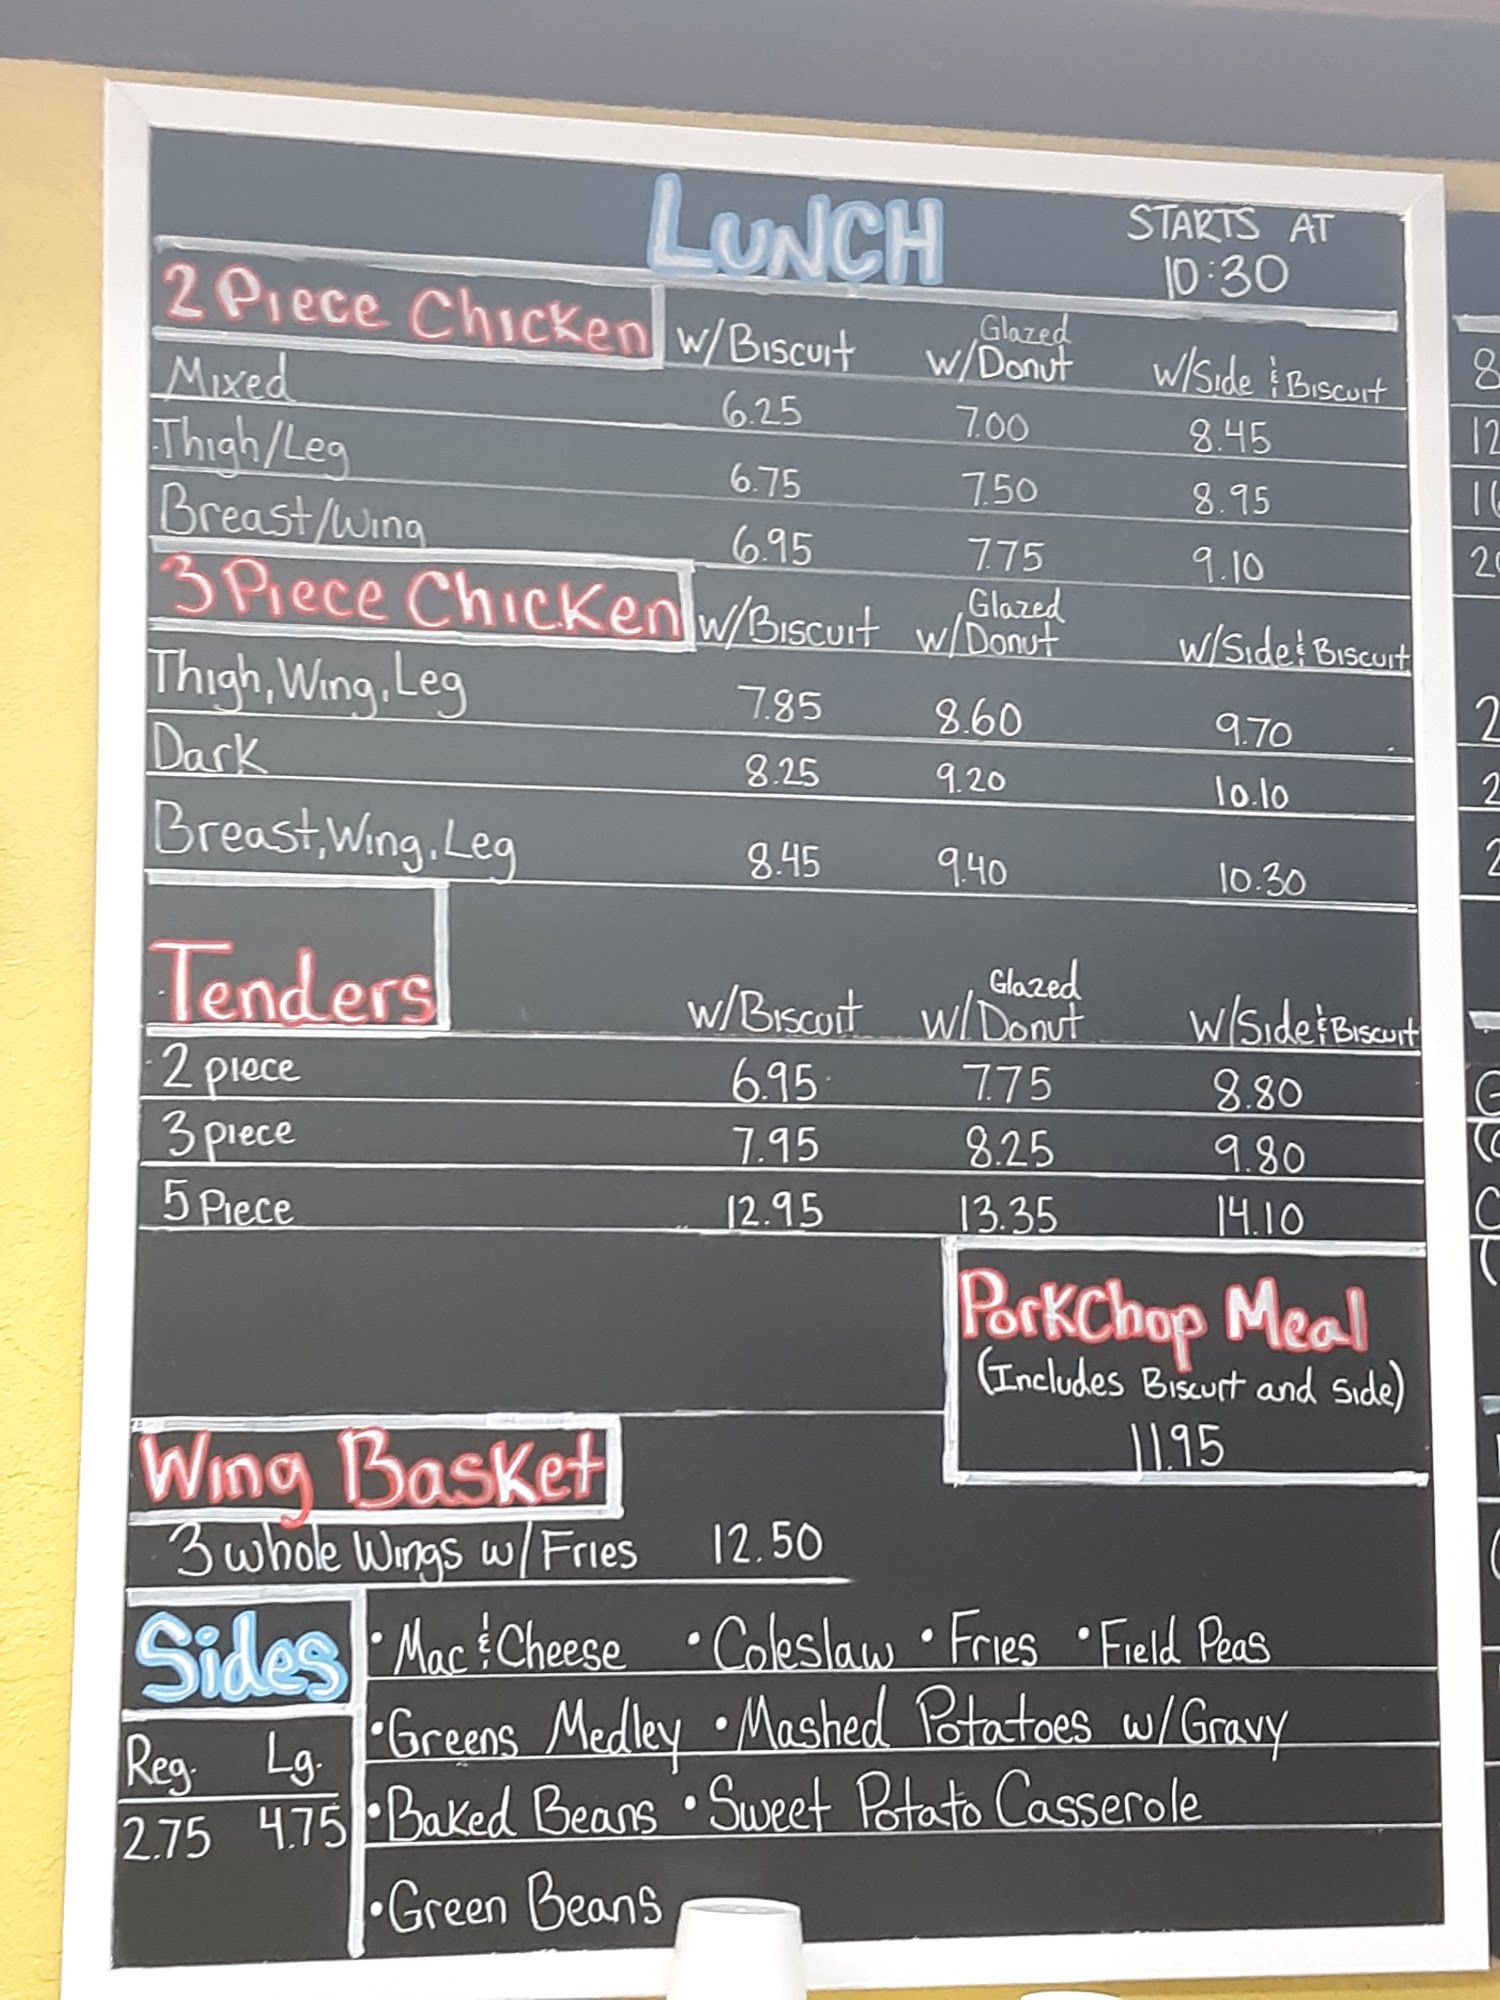 LUNCH STARTS AT
10:30
2 Piece Chicken w/Biscuit Glazed w/Donut w/Side & Biscuit
Mixed 6.25 7.00 8.45
Thigh/Leg 6.75 7.50 8.95
Breast/Wing 6.95 7.75 9.10
3 Piece Chicken w/Biscuit Glazed w/Donut w/Side & Biscuit
Thigh, Wing, Leg 7.85 8.60 9.70
Dark 8.25 9.20 10.10
Breast, Wing, Leg 8.45 9.40 10.30
Tenders w/Biscuit Glazed w/Donut w/Side & Biscuit
2 piece 6.95 7.75 8.80
3 piece 7.95 8.25 9.80
5 Piece 12.95 13.35 14.10
PorkChop Meal
(Includes Biscuit and Side)
11.95
Wing Basket
3 whole Wings w/Fries 12.50
Sides
Reg. Lg.
2.75 4.75
• Mac & Cheese • Coleslaw • Fries • Field Peas
• Greens Medley • Mashed Potatoes w/Gravy
• Baked Beans • Sweet Potato Casserole
• Green Beans